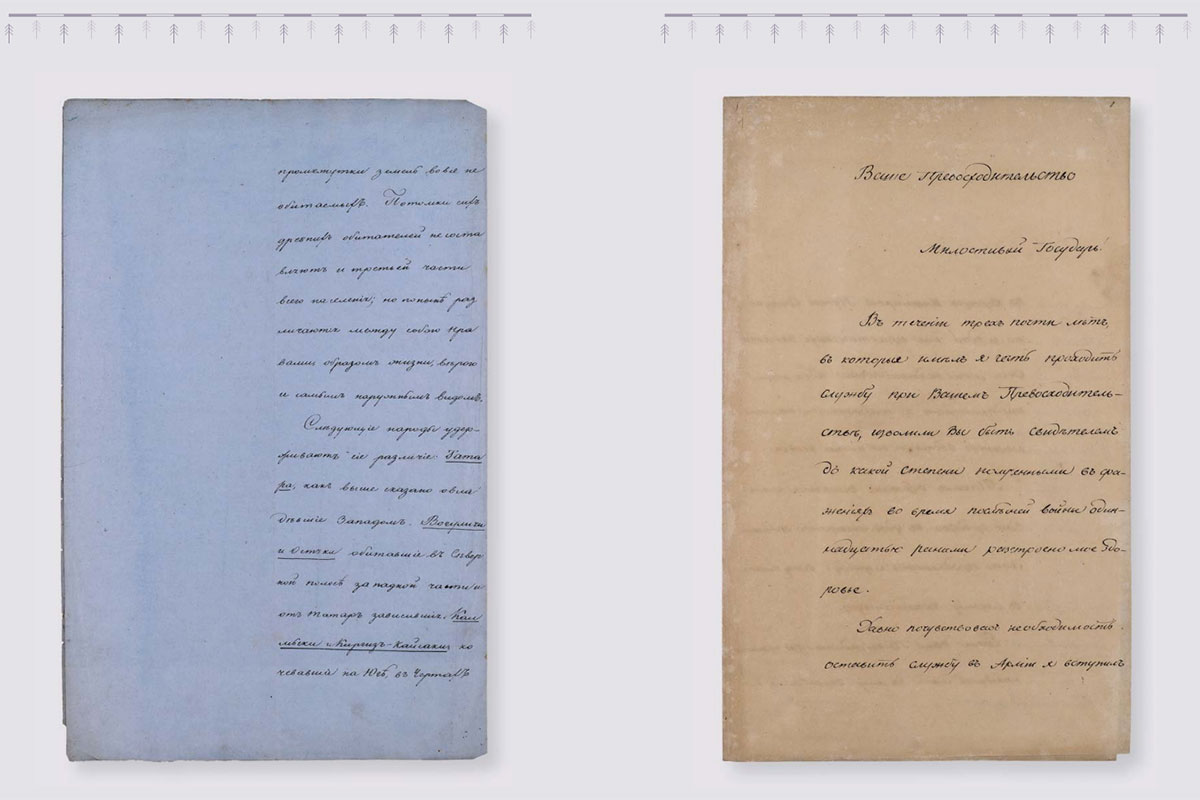 промежутки земель вовсе не
обитаемыхъ. Потомки сихъ
древнихъ обитателей не соста
вляютъ и третьей части
всего населенія; но понынѣ раз
личаются между собою нра
вами, образомъ жизни, вѣрою
и самымъ наружнымъ видомъ.
Слѣдующіе народы удер-
живаютъ сіе различіе: Тата
ра, какъ выше сказано овла
дѣвшіе Западомъ. Вогуличи
и Остяки обитавшіе въ Сѣвер
ной полосѣ западной части и
отъ татаръ зависѣвшіе. Кал
мыки и Киргизъ-Кайсаки, ко
чевавшіе на Югѣ, въ чертахъ
Ваше Превосходительство
Милостивый Государь!
Въ теченіи трехъ почти лѣтъ,
въ которые имѣлъ я честь проходить
службу при Вашемъ Превосходитель-
ствѣ, изволили Вы быть свидѣтелемъ
до какой степени полученными въ сра-
женіяхъ во время послѣдней войны один-
надцатью ранами разстроено мое здо-
ровье.
Давно почувствовавъ необходимость
оставить службу въ Арміи я вступилъ